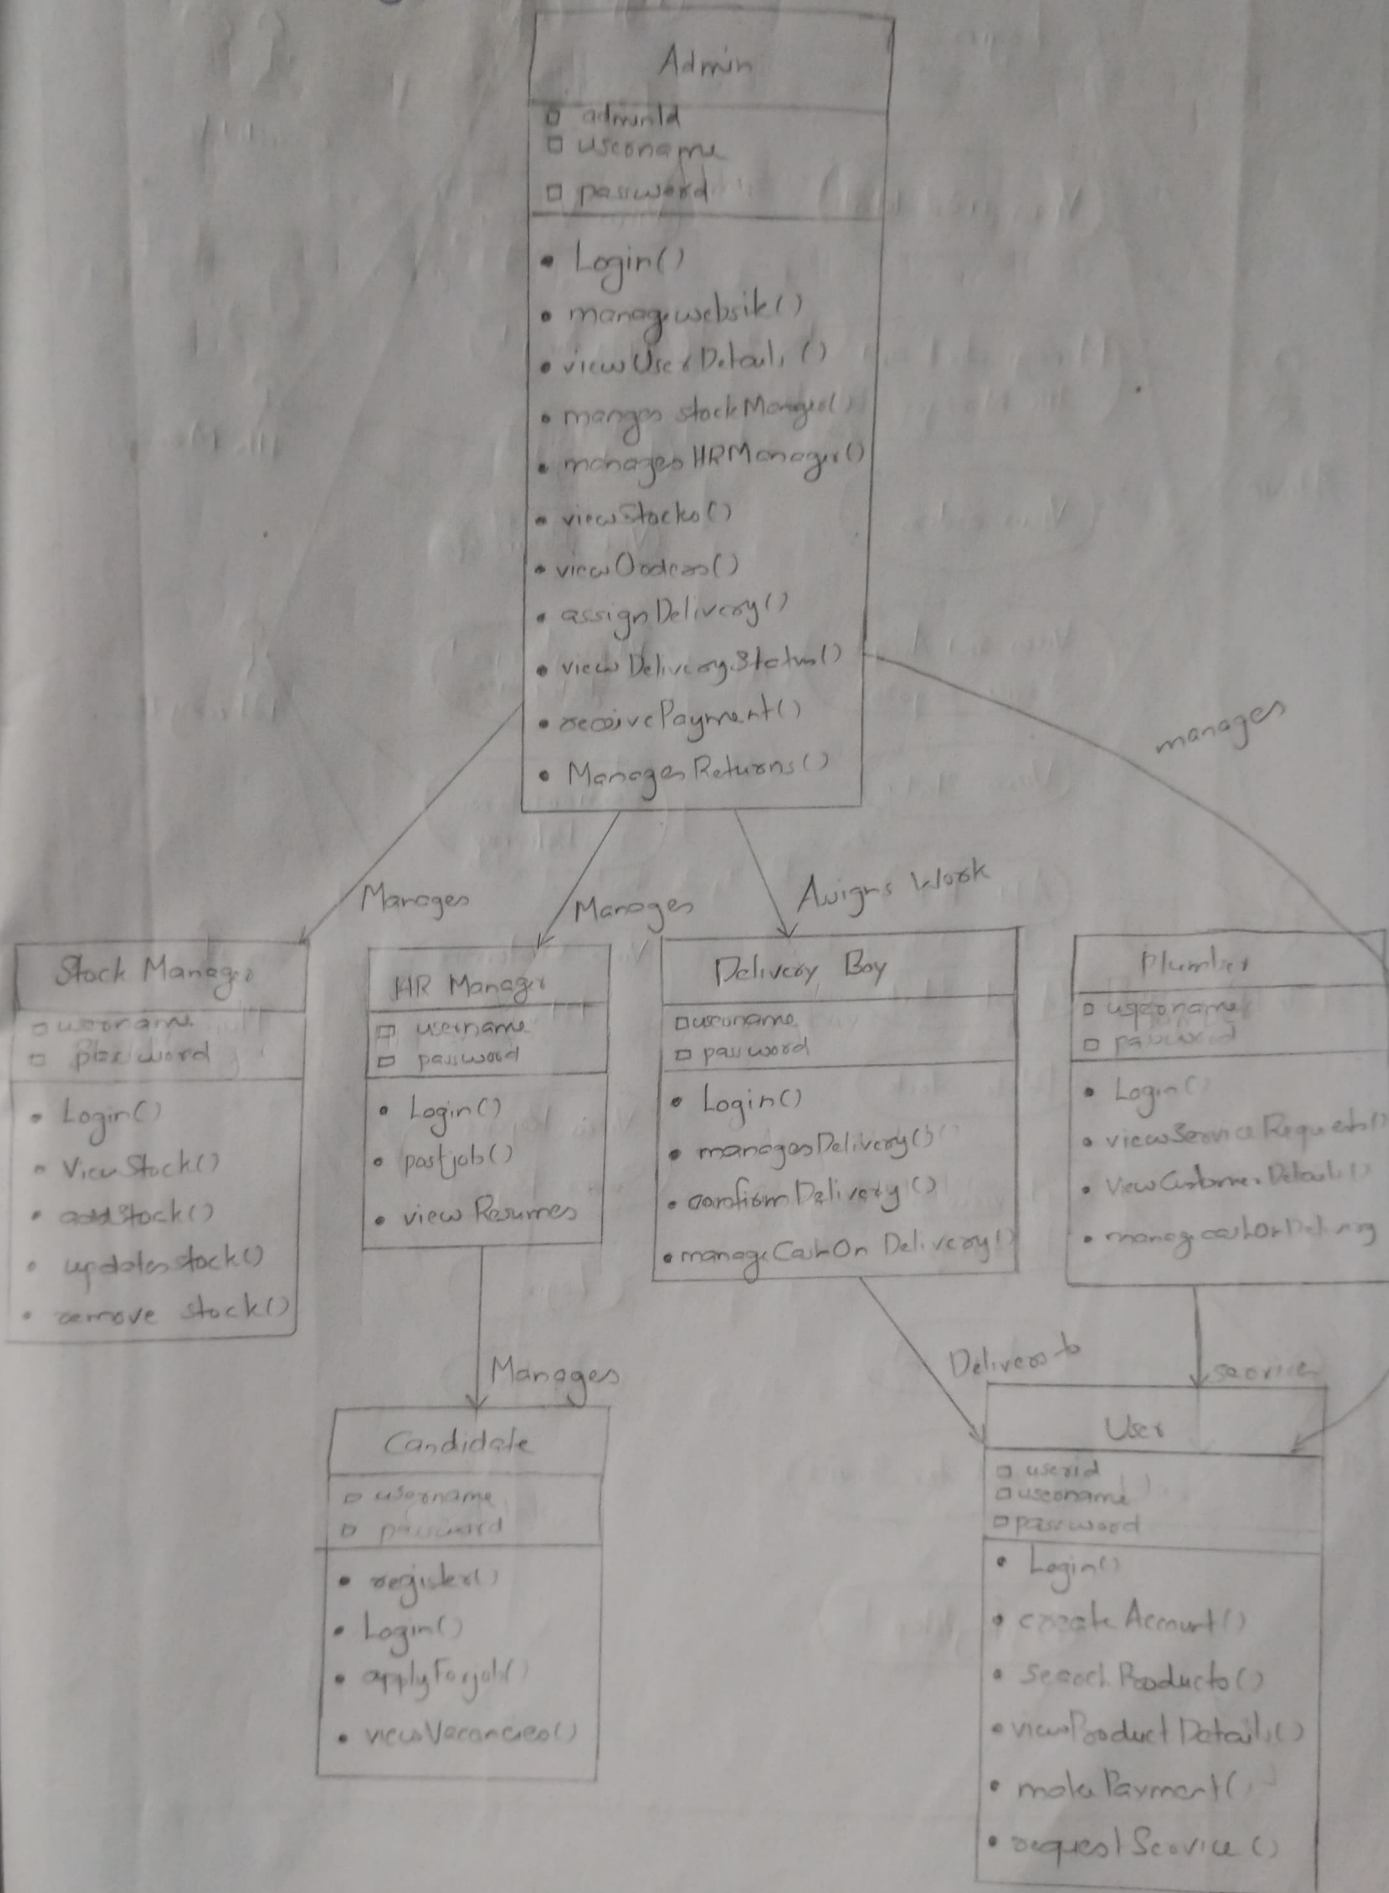 Admin
adminId
username
password
Login()
managewebsite()
viewUserDetails()
manges stockManger()
managesHRManager()
viewStocks()
viewOrders()
assignDelivery()
viewDeliveryStatus()
receivePayment()
ManagesReturns()
manages
Manages
Manages
Assigns Work
Stock Manager
username
password
Login()
ViewStock()
addStock()
updatesstock()
remove stock()
HR Manager
username
password
Login()
postjob()
viewResumes
Delivery Boy
username
password
Login()
managesDelivery()
confirmDelivery()
manageCashOn Delivery()
Plumber
username
password
Login()
viewServiceRequests()
ViewCustomerDetails()
managecashOnDelivery
Manages
Delivers to
services
Candidate
username
password
register()
Login()
applyForjob()
viewVacancies()
User
userid
username
password
Login()
createAccount()
searchProducts()
viewProductDetails()
makePayment()
requestService()